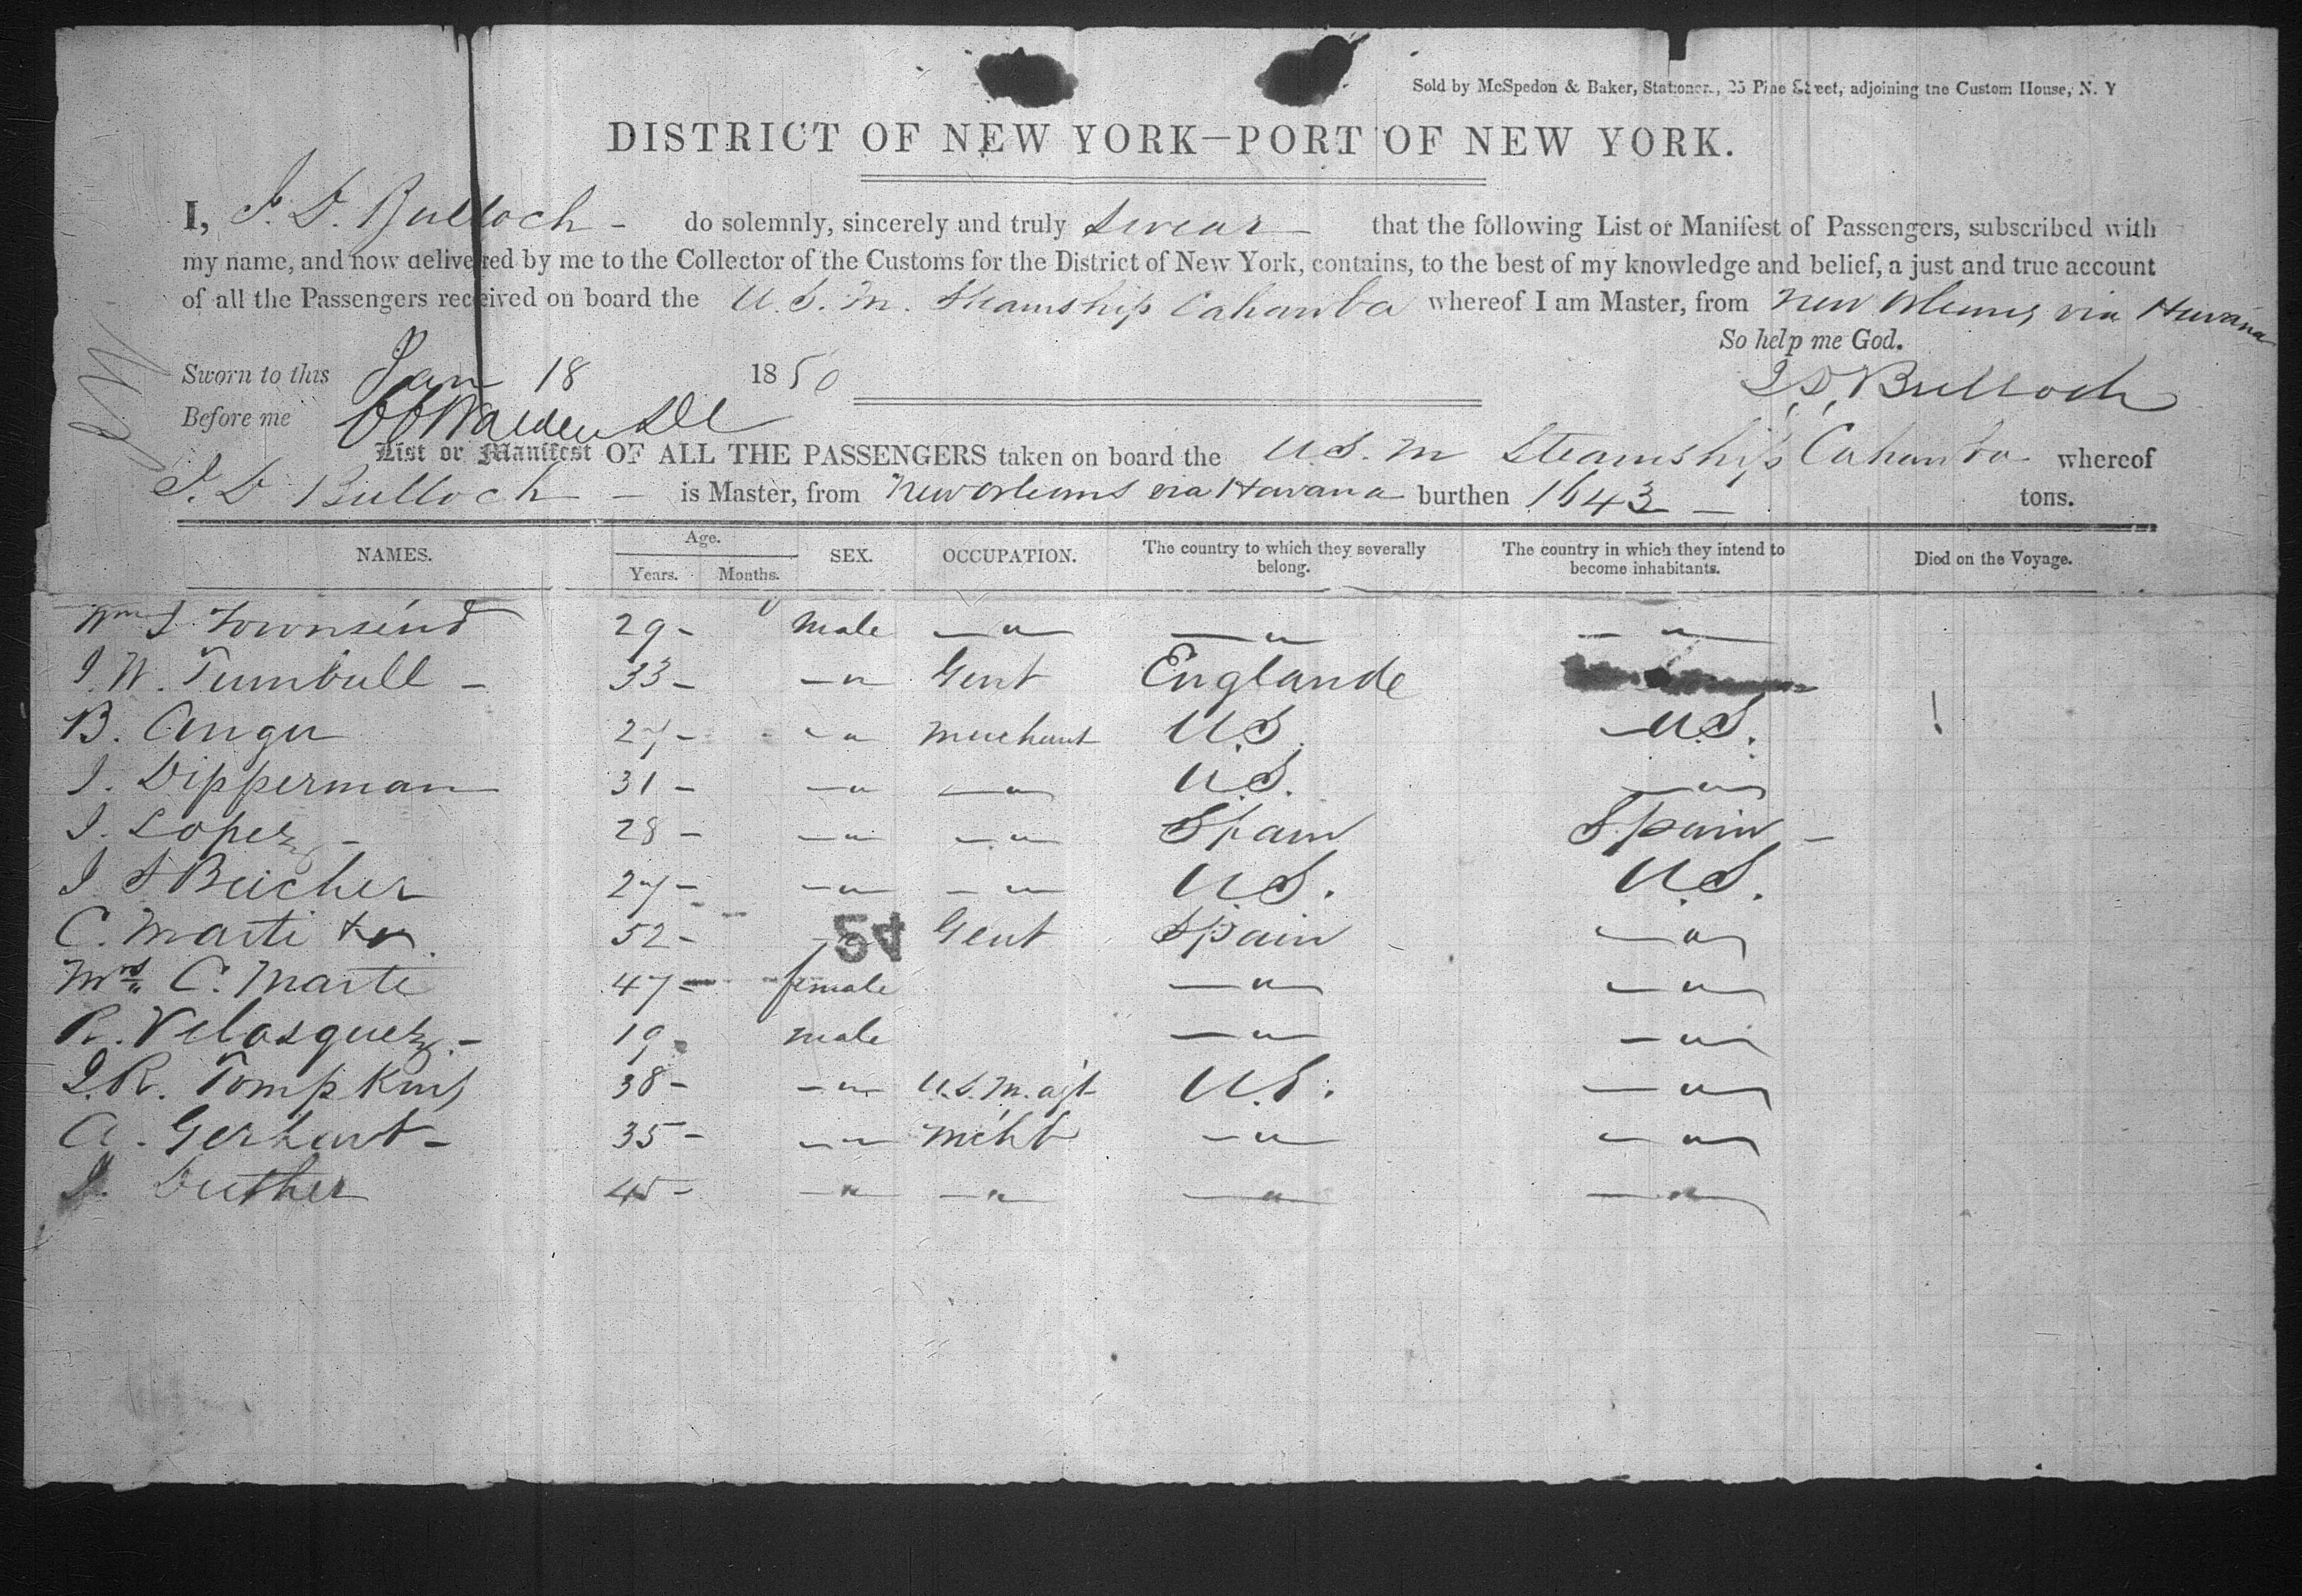 Sold by McSpedon & Baker, Stationers, 25 Pine Street, adjoining the Custom House, N. Y
DISTRICT OF NEW YORK—PORT OF NEW YORK.
I, J. D. Bulloch - do solemnly, sincerely and truly swear - that the following List or Manifest of Passengers, subscribed with
my name, and now delivered by me to the Collector of the Customs for the District of New York, contains, to the best of my knowledge and belief, a just and true account
of all the Passengers received on board the U. S. M. Steamship Cahawba whereof I am Master, from New Orleans via Havana
So help me God.
Sworn to this Jan 18 1850 J. D. Bulloch
Before me
List or Manifest OF ALL THE PASSENGERS taken on board the U. S. M Steamship Cahawba whereof
J. D Bulloch - is Master, from New Orleans via Havana burthen 1643 - tons.
NAMES. Age. Years. Months. SEX. OCCUPATION. The country to which they severally belong. The country in which they intend to become inhabitants. Died on the Voyage.
Wm J Townsend 29 - male — " — — " — — " —
J. W. Turnbull - 33 - — " — Gent Englande
B. Angu 27 - — " merchant U.S. U.S.
J. Dipperman 31 - — " — — " — U.S. — " —
J. Lopez - 28 - — " — — " — Spain Spain -
J S Beicher 27 - — " — — " — U.S. U.S.
C. Marti 52 - Gent Spain — " —
54
Mrs C. Marti 47 - female — " — — " —
R. Velasquez - 19 male — " — — " —
J. R. Tompkins 38 - — " — U.S.M. agt U.S. — " —
A. Gerhart - 35 - — " — Mcht — " — — " —
J. Duther 45 - — " — — " — — " — — " —